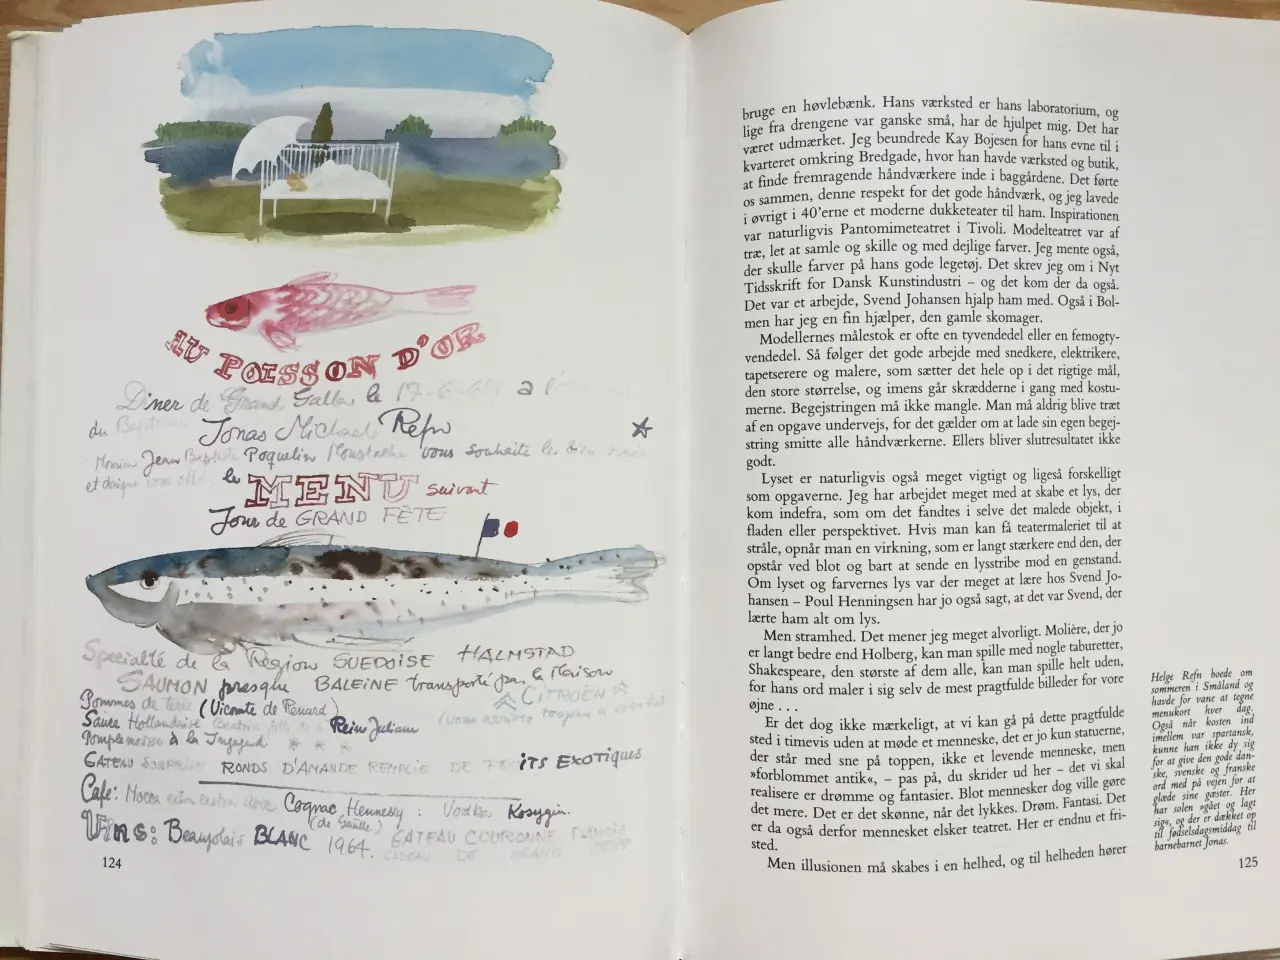 AU POISSON D'OR
Diner de Grand Galla le 17-6-
du
Jonas Michael Refn
Monsieur Jean Baptiste Poquelin Moustache vous souhaite les
et daigne vous
le MENU suivant
Jour de GRAND FÊTE
Specialité de la Region SUEDOISE HALMSTAD
SAUMON presque BALEINE transporté par la Maison
CITROËN
Pommes de terre (Vicomte de Renard)
(vous arrivez toujours à
Sauce Hollandaise Reine Juliana
Pomplemousse à la Ingegerd
GATEAU SURPRISE RONDS D'AMANDE REMPLIE DE FRUITS EXOTIQUES
Café: Mocca extra Cognac Hennessy : Vodka Kosygin.
(de Gaulle)
Vins: Beaujolais BLANC 1964. GATEAU COURONNE
CADEAU DE GRAND
124
bruge en høvlebænk. Hans værksted er hans laboratorium, og
lige fra drengene var ganske små, har de hjulpet mig. Det har
været udmærket. Jeg beundrede Kay Bojesen for hans evne til i
kvarteret omkring Bredgade, hvor han havde værksted og butik,
at finde fremragende håndværkere inde i baggårdene. Det førte
os sammen, denne respekt for det gode håndværk, og jeg lavede
i øvrigt i 40'erne et moderne dukketeater til ham. Inspirationen
var naturligvis Pantomimeteatret i Tivoli. Modelteatret var af
træ, let at samle og skille og med dejlige farver. Jeg mente også,
der skulle farver på hans gode legetøj. Det skrev jeg om i Nyt
Tidsskrift for Dansk Kunstindustri – og det kom der da også.
Det var et arbejde, Svend Johansen hjalp ham med. Også i Bol-
men har jeg en fin hjælper, den gamle skomager.
Modellernes målestok er ofte en tyvendedel eller en femogty-
vendedel. Så følger det gode arbejde med snedkere, elektrikere,
tapetserere og malere, som sætter det hele op i det rigtige mål,
den store størrelse, og imens går skrædderne i gang med kostu-
merne. Begejstringen må ikke mangle. Man må aldrig blive træt
af en opgave undervejs, for det gælder om at lade sin egen begej-
string smitte alle håndværkerne. Ellers bliver slutresultatet ikke
godt.
Lyset er naturligvis også meget vigtigt og ligeså forskelligt
som opgaverne. Jeg har arbejdet meget med at skabe et lys, der
kom indefra, som om det fandtes i selve det malede objekt, i
fladen eller perspektivet. Hvis man kan få teatermaleriet til at
stråle, opnår man en virkning, som er langt stærkere end den, der
opstår ved blot og bart at sende en lysstribe mod en genstand.
Om lyset og farvernes lys var der meget at lære hos Svend Jo-
hansen – Poul Henningsen har jo også sagt, at det var Svend, der
lærte ham alt om lys.
Men stramhed. Det mener jeg meget alvorligt. Molière, der jo
er langt bedre end Holberg, kan man spille med nogle taburetter,
Shakespeare, den største af dem alle, kan man spille helt uden,
for hans ord maler i sig selv de mest pragtfulde billeder for vore
øjne . . .
Er det dog ikke mærkeligt, at vi kan gå på dette pragtfulde
sted i timevis uden at møde et menneske, det er jo kun statuerne,
der står med sne på toppen, ikke et levende menneske, men
»forblommet antik«, – pas på, du skrider ud her – det vi skal
realisere er drømme og fantasier. Blot mennesker dog ville gøre
det mere. Det er det skønne, når det lykkes. Drøm. Fantasi. Det
er da også derfor mennesket elsker teatret. Her er endnu et fri-
sted.
Men illusionen må skabes i en helhed, og til helheden hører
Helge Refn boede om
sommeren i Småland og
havde for vane at tegne
menukort hver dag.
Også når kosten ind
imellem var spartansk,
kunne han ikke dy sig
for at give den gode dan-
ske, svenske og franske
ord med på vejen for at
glæde sine gæster. Her
har solen »gået og lagt
sig«, og der er dækket op
til fødselsdagsmiddag til
barnebarnet Jonas.
125